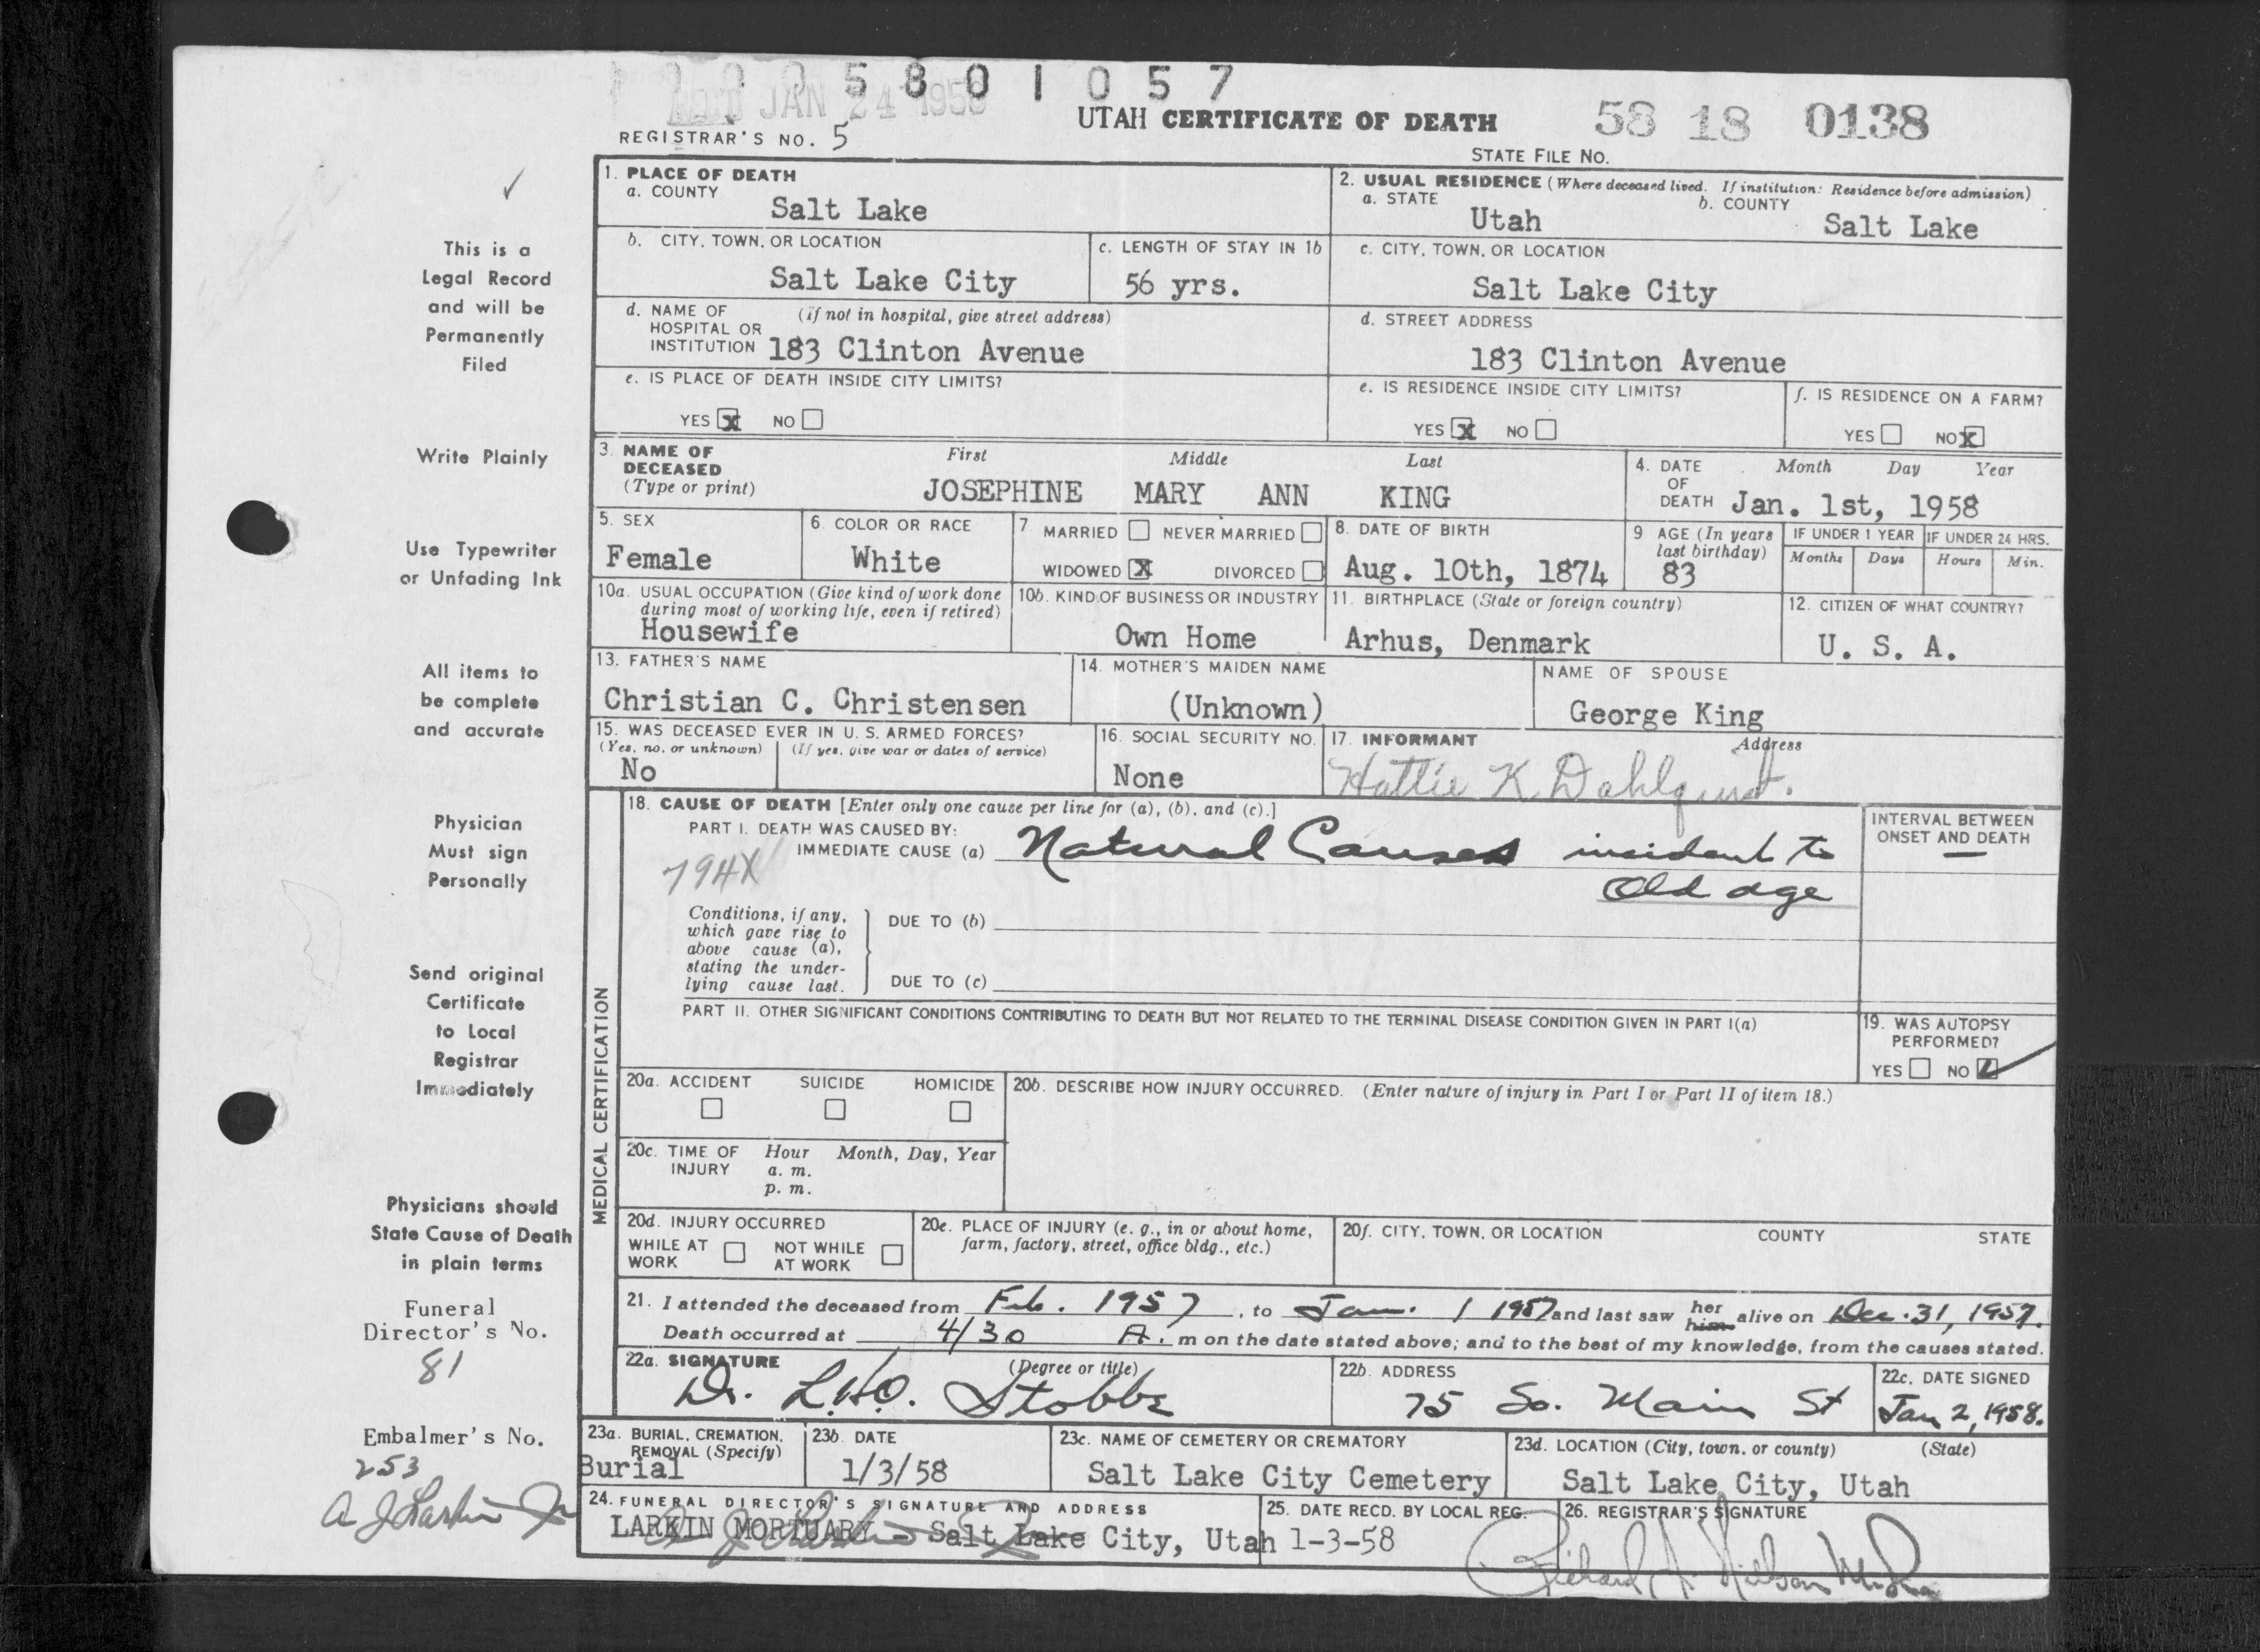 1 0 0 5 8 0 1 0 5 7
REC'D JAN 24 1958
UTAH CERTIFICATE OF DEATH
58 18 0138
REGISTRAR'S NO. 5
STATE FILE NO.
This is a
Legal Record
and will be
Permanently
Filed
Write Plainly
Use Typewriter
or Unfading Ink
All items to
be complete
and accurate
Physician
Must sign
Personally
Send original
Certificate
to Local
Registrar
Immediately
Physicians should
State Cause of Death
in plain terms
Funeral
Director's No.
81
Embalmer's No.
253
A J Larkin Jr
1. PLACE OF DEATH
a. COUNTY
Salt Lake
2. USUAL RESIDENCE (Where deceased lived. If institution: Residence before admission)
a. STATE
Utah
b. COUNTY
Salt Lake
b. CITY, TOWN, OR LOCATION
Salt Lake City
c. LENGTH OF STAY IN 1b
56 yrs.
c. CITY, TOWN, OR LOCATION
Salt Lake City
d. NAME OF (if not in hospital, give street address)
HOSPITAL OR
INSTITUTION 183 Clinton Avenue
d. STREET ADDRESS
183 Clinton Avenue
e. IS PLACE OF DEATH INSIDE CITY LIMITS?
YES X NO
e. IS RESIDENCE INSIDE CITY LIMITS?
YES X NO
f. IS RESIDENCE ON A FARM?
YES NO X
3. NAME OF
DECEASED
(Type or print)
First Middle Last
JOSEPHINE MARY ANN KING
4. DATE
OF
DEATH
Month Day Year
Jan. 1st, 1958
5. SEX
Female
6. COLOR OR RACE
White
7. MARRIED NEVER MARRIED
WIDOWED X DIVORCED
8. DATE OF BIRTH
Aug. 10th, 1874
9 AGE (In years
last birthday)
83
IF UNDER 1 YEAR
Months Days
IF UNDER 24 HRS.
Hours Min.
10a. USUAL OCCUPATION (Give kind of work done
during most of working life, even if retired)
Housewife
10b. KIND OF BUSINESS OR INDUSTRY
Own Home
11. BIRTHPLACE (State or foreign country)
Arhus, Denmark
12. CITIZEN OF WHAT COUNTRY?
U. S. A.
13. FATHER'S NAME
Christian C. Christensen
14. MOTHER'S MAIDEN NAME
(Unknown)
NAME OF SPOUSE
George King
15. WAS DECEASED EVER IN U. S. ARMED FORCES?
(Yes, no, or unknown) (If yes, give war or dates of service)
No
16. SOCIAL SECURITY NO.
None
17. INFORMANT Address
Hattie K. Dahlquist.
MEDICAL CERTIFICATION
18. CAUSE OF DEATH [Enter only one cause per line for (a), (b), and (c).]
PART I. DEATH WAS CAUSED BY:
IMMEDIATE CAUSE (a) Natural Causes incident to
Old age
794X
INTERVAL BETWEEN
ONSET AND DEATH
—
Conditions, if any,
which gave rise to
above cause (a),
stating the under-
lying cause last.
DUE TO (b)
DUE TO (c)
PART II. OTHER SIGNIFICANT CONDITIONS CONTRIBUTING TO DEATH BUT NOT RELATED TO THE TERMINAL DISEASE CONDITION GIVEN IN PART I(a)
19. WAS AUTOPSY
PERFORMED?
YES NO ✓
20a. ACCIDENT SUICIDE HOMICIDE
20b. DESCRIBE HOW INJURY OCCURRED. (Enter nature of injury in Part I or Part II of item 18.)
20c. TIME OF Hour Month, Day, Year
INJURY a. m.
p. m.
20d. INJURY OCCURRED
WHILE AT NOT WHILE
WORK AT WORK
20e. PLACE OF INJURY (e. g., in or about home,
farm, factory, street, office bldg., etc.)
20f. CITY, TOWN, OR LOCATION COUNTY STATE
21. I attended the deceased from Feb. 1957, to Jan. 1 1957 and last saw her him alive on Dec. 31, 1957.
Death occurred at 4/30 A. m on the date stated above; and to the best of my knowledge, from the causes stated.
22a. SIGNATURE (Degree or title)
Dr. L.H.O. Stobbe
22b. ADDRESS
75 So. Main St
22c. DATE SIGNED
Jan 2, 1958.
23a. BURIAL, CREMATION,
REMOVAL (Specify)
Burial
23b. DATE
1/3/58
23c. NAME OF CEMETERY OR CREMATORY
Salt Lake City Cemetery
23d. LOCATION (City, town, or county) (State)
Salt Lake City, Utah
24. FUNERAL DIRECTOR'S SIGNATURE AND ADDRESS
LARKIN MORTUARY Salt Lake City, Utah
A J Larkin Jr
25. DATE RECD. BY LOCAL REG.
1-3-58
26. REGISTRAR'S SIGNATURE
Richard A. Nilson